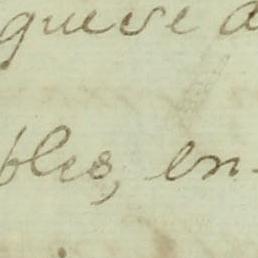 quese a
bles, en-